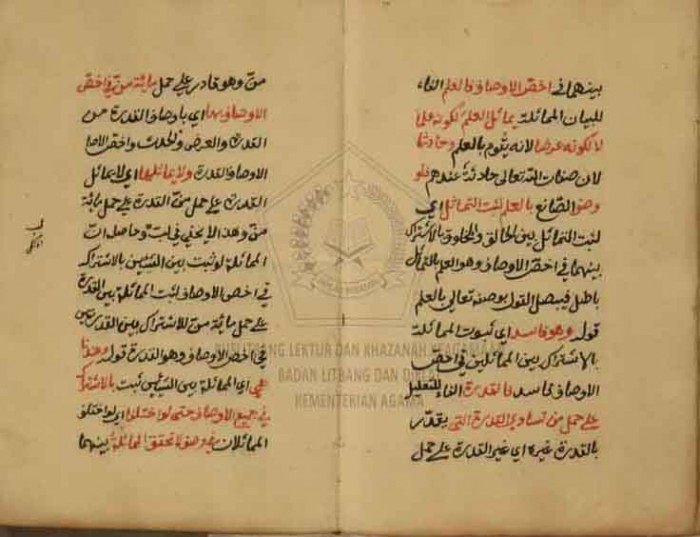 بينهما في اخص الاوصاف فالعلم الفاء
للبيان المماثلة يماثل العلم لكونه علما
لا لكونه عرضا لانه يقوم بالعلم وحادثا
لان صفات الله تعالى حادثة عندهم فلو
وصف الصانع بالعلم لثبت التماثل اي
لثبت التماثل بين الخالق والمخلوق بالاشتراك
بينهما في اخص الاوصاف وهو العلم بالتماثل
باطل فيبطل القول بوصفه تعالى بالعلم
قوله وهو فاسد اي ثبوت المماثلة
بالاشتراك بين المماثلين في اخص
الاوصاف فاسد فالقدرة الفاء للتعليل
على حمل من تساوي القدرة التي يقدر
بالقدرة غيره اي غير القدرة على حمل
من وهو قادر على حمل مائة من في اخص
الاوصاف بها اي باوصاف القدرة من
القدرة والعرض والحدث واخص الاصا
الاوصاف القدرة ولا يماثلها اي لا يماثل
القدرة على حمل من القدرة على حمل مائة
من وهذا لا يخفى وحاصل ان
المماثلة لو ثبت بين الشيئين بالاشتراك
في اخص الاوصاف لثبت المماثلة بين القدرة
على حمل مائة من للاشتراك بين القدرتين
في اخص الاوصاف وهو القدرة قوله وعندنا
هي اي المماثلة بين الشيئين ثبت بالاشتراك
في جميع الاوصاف حتى لو اختلفا اي لو اختلف
المماثلان في وصف لا تحقق المماثلة بينهما
PUSLITBANG LEKTUR DAN KHAZANAH KEAGAMAAN
BADAN LITBANG DAN DIKLAT
KEMENTERIAN AGAMA